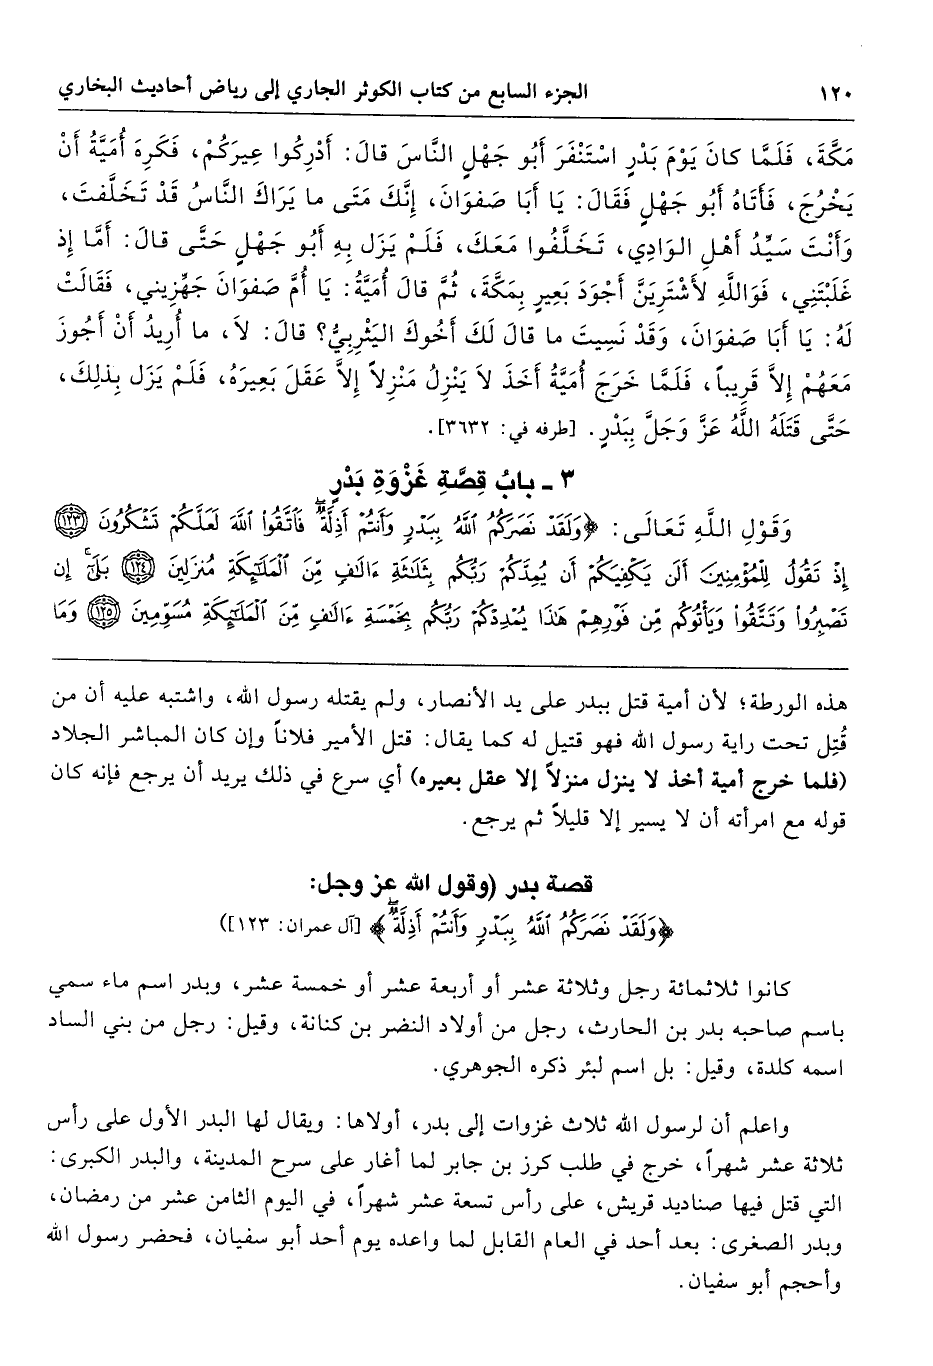 ١٢٠ الجزء السابع من كتاب الكوثر الجاري إلى رياض أحاديث البخاري
مَكَّةَ، فَلَمَّا كانَ يَوْمَ بَدْرٍ اسْتَنْفَرَ أَبُو جَهْلٍ النَّاسَ قالَ: أَدْرِكُوا عِيرَكُمْ، فَكَرِهَ أُمَيَّةُ أَنْ
يَخْرُجَ، فَأَتَاهُ أَبُو جَهْلٍ فَقَالَ: يَا أَبَا صَفوَانَ، إِنَّكَ مَتَى ما يَرَاكَ النَّاسُ قَدْ تَخَلَّفتَ،
وَأَنْتَ سَيِّدُ أَهْلِ الوَادِي، تَخَلَّفُوا مَعَكَ، فَلَمْ يَزَل بِهِ أَبُو جَهْلٍ حَتَّى قالَ: أَمَّا إِذ
غَلَبْتَنِي، فَوَاللَّهِ لأَشْتَرِيَنَّ أَجْوَدَ بَعِيرٍ بِمَكَّةَ، ثُمَّ قالَ أُمَيَّةُ: يَا أُمَّ صَفوَانَ جَهِّزِيني، فَقَالَتْ
لَهُ: يَا أَبَا صَفوَانَ، وَقَدْ نَسِيتَ ما قالَ لَكَ أَخُوكَ اليَثْرِبِيُّ؟ قالَ: لاَ، ما أُرِيدُ أَنْ أَجُوزَ
مَعَهُمْ إِلاَّ قَرِيباً، فَلَمَّا خَرَجَ أُمَيَّةُ أَخَذَ لاَ يَنْزِلُ مَنْزِلاً إِلاَّ عَقَلَ بَعِيرَهُ، فَلَمْ يَزَل بِذلِكَ،
حَتَّى قَتَلَهُ اللَّهُ عَزَّ وَجَلَّ بِبَدْرٍ. [طرفه في: ٣٦٣٢].
٣ ـ بابُ قِصَّةِ غَزْوَةِ بَدْرٍ
وَقَوْلِ اللَّهِ تَعَالَى: ﴿وَلَقَدْ نَصَرَكُمُ ٱللَّهُ بِبَدْرٍ وَأَنتُمْ أَذِلَّةٌ ۖ فَٱتَّقُوا۟ ٱللَّهَ لَعَلَّكُمْ تَشْكُرُونَ ١٢٣
إِذْ تَقُولُ لِلْمُؤْمِنِينَ أَلَن يَكْفِيَكُمْ أَن يُمِدَّكُمْ رَبُّكُم بِثَلَٰثَةِ ءَالَٰفٍ مِّنَ ٱلْمَلَٰٓئِكَةِ مُنزَلِينَ ١٢٤ بَلَىٰٓ ۚ إِن
تَصْبِرُوا۟ وَتَتَّقُوا۟ وَيَأْتُوكُم مِّن فَوْرِهِمْ هَٰذَا يُمْدِدْكُمْ رَبُّكُم بِخَمْسَةِ ءَالَٰفٍ مِّنَ ٱلْمَلَٰٓئِكَةِ مُسَوِّمِينَ ١٢٥ وَمَا
هذه الورطة؛ لأن أمية قتل ببدر على يد الأنصار، ولم يقتله رسول الله، واشتبه عليه أن من
قُتِل تحت راية رسول الله فهو قتيل له كما يقال: قتل الأمير فلاناً وإن كان المباشر الجلاد
(فلما خرج أمية أخذ لا ينزل منزلاً إلا عقل بعيره) أي سرع في ذلك يريد أن يرجع فإنه كان
قوله مع امرأته أن لا يسير إلا قليلاً ثم يرجع.
قصة بدر (وقول الله عز وجل:
﴿وَلَقَدْ نَصَرَكُمُ ٱللَّهُ بِبَدْرٍ وَأَنتُمْ أَذِلَّةٌ ۖ﴾ [آل عمران: ١٢٣])
كانوا ثلاثمائة رجل وثلاثة عشر أو أربعة عشر أو خمسة عشر، وبدر اسم ماء سمي
باسم صاحبه بدر بن الحارث، رجل من أولاد النضر بن كنانة، وقيل: رجل من بني الساد
اسمه كلدة، وقيل: بل اسم لبئر ذكره الجوهري.
واعلم أن لرسول الله ثلاث غزوات إلى بدر، أولاها: ويقال لها البدر الأول على رأس
ثلاثة عشر شهراً، خرج في طلب كرز بن جابر لما أغار على سرح المدينة، والبدر الكبرى:
التي قتل فيها صناديد قريش، على رأس تسعة عشر شهراً، في اليوم الثامن عشر من رمضان،
وبدر الصغرى: بعد أحد في العام القابل لما واعده يوم أحد أبو سفيان، فحضر رسول الله
وأحجم أبو سفيان.